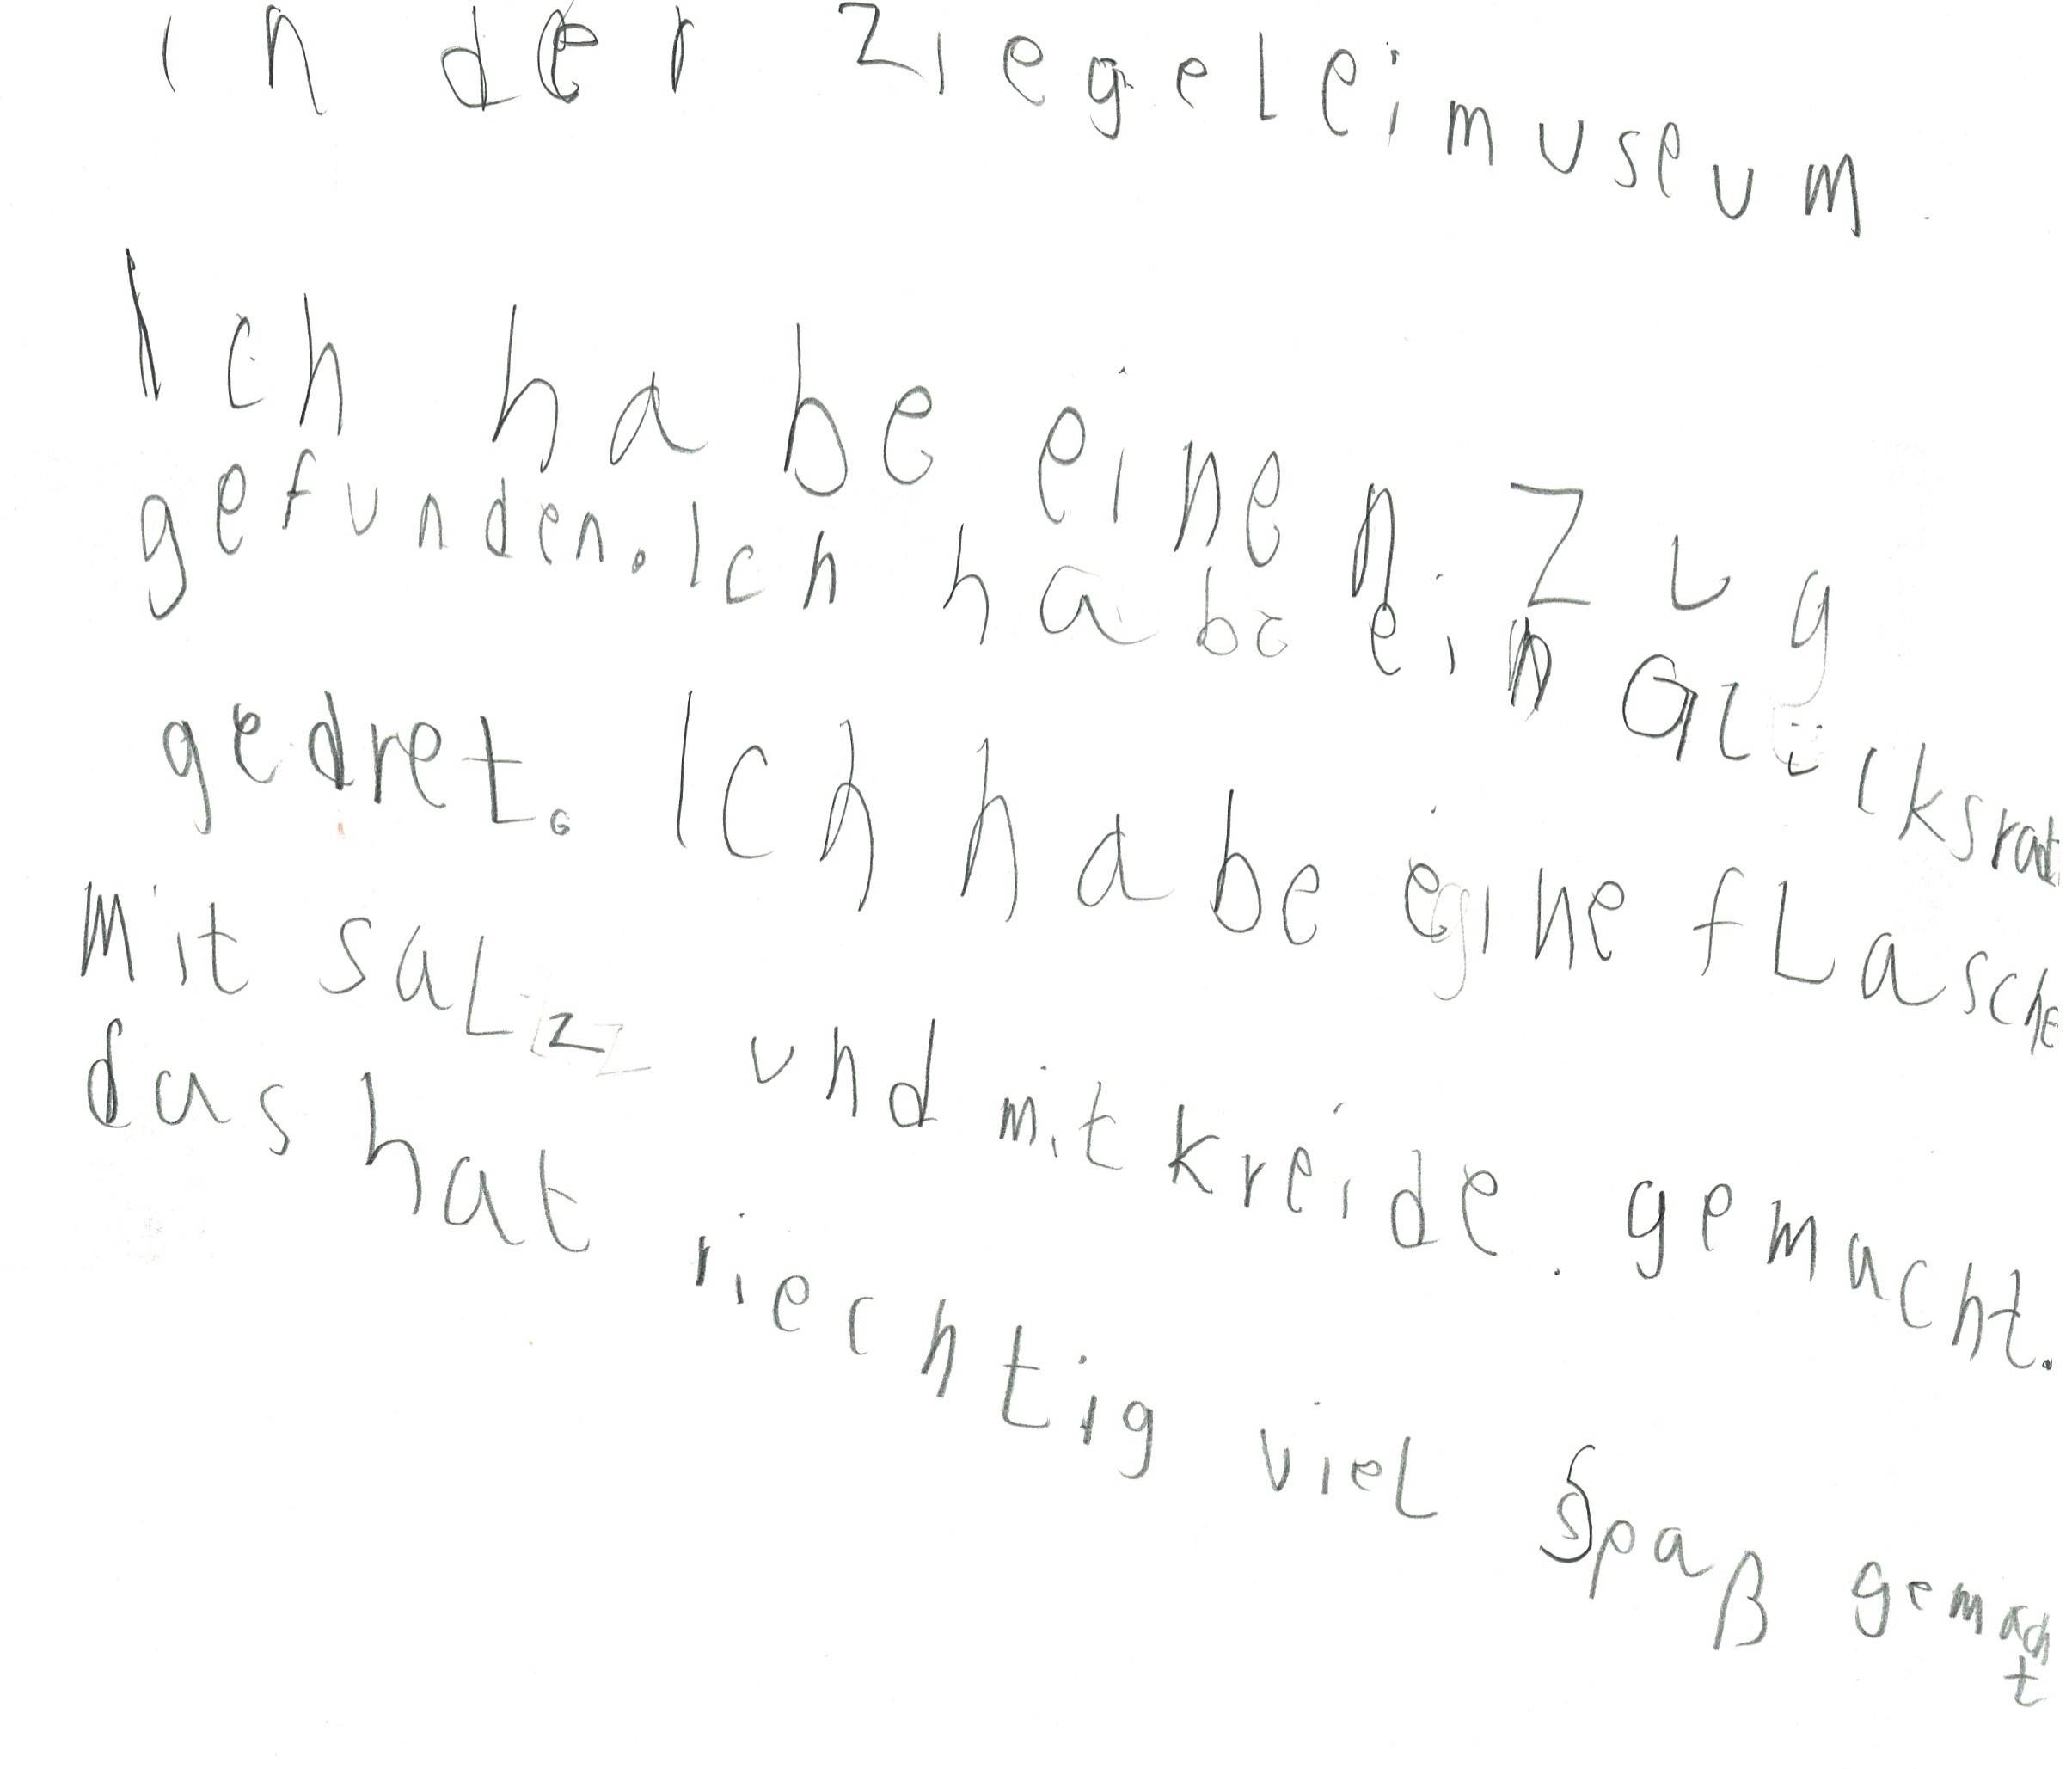 in der Ziegeleimuseum.
Ich habe einen Zug
gefunden. Ich habe ein Glücksrat
gedret. Ich habe eine fLasche
mit saLz und mit kreide. gemacht.
das hat riechtig vieL Spaß gemacht